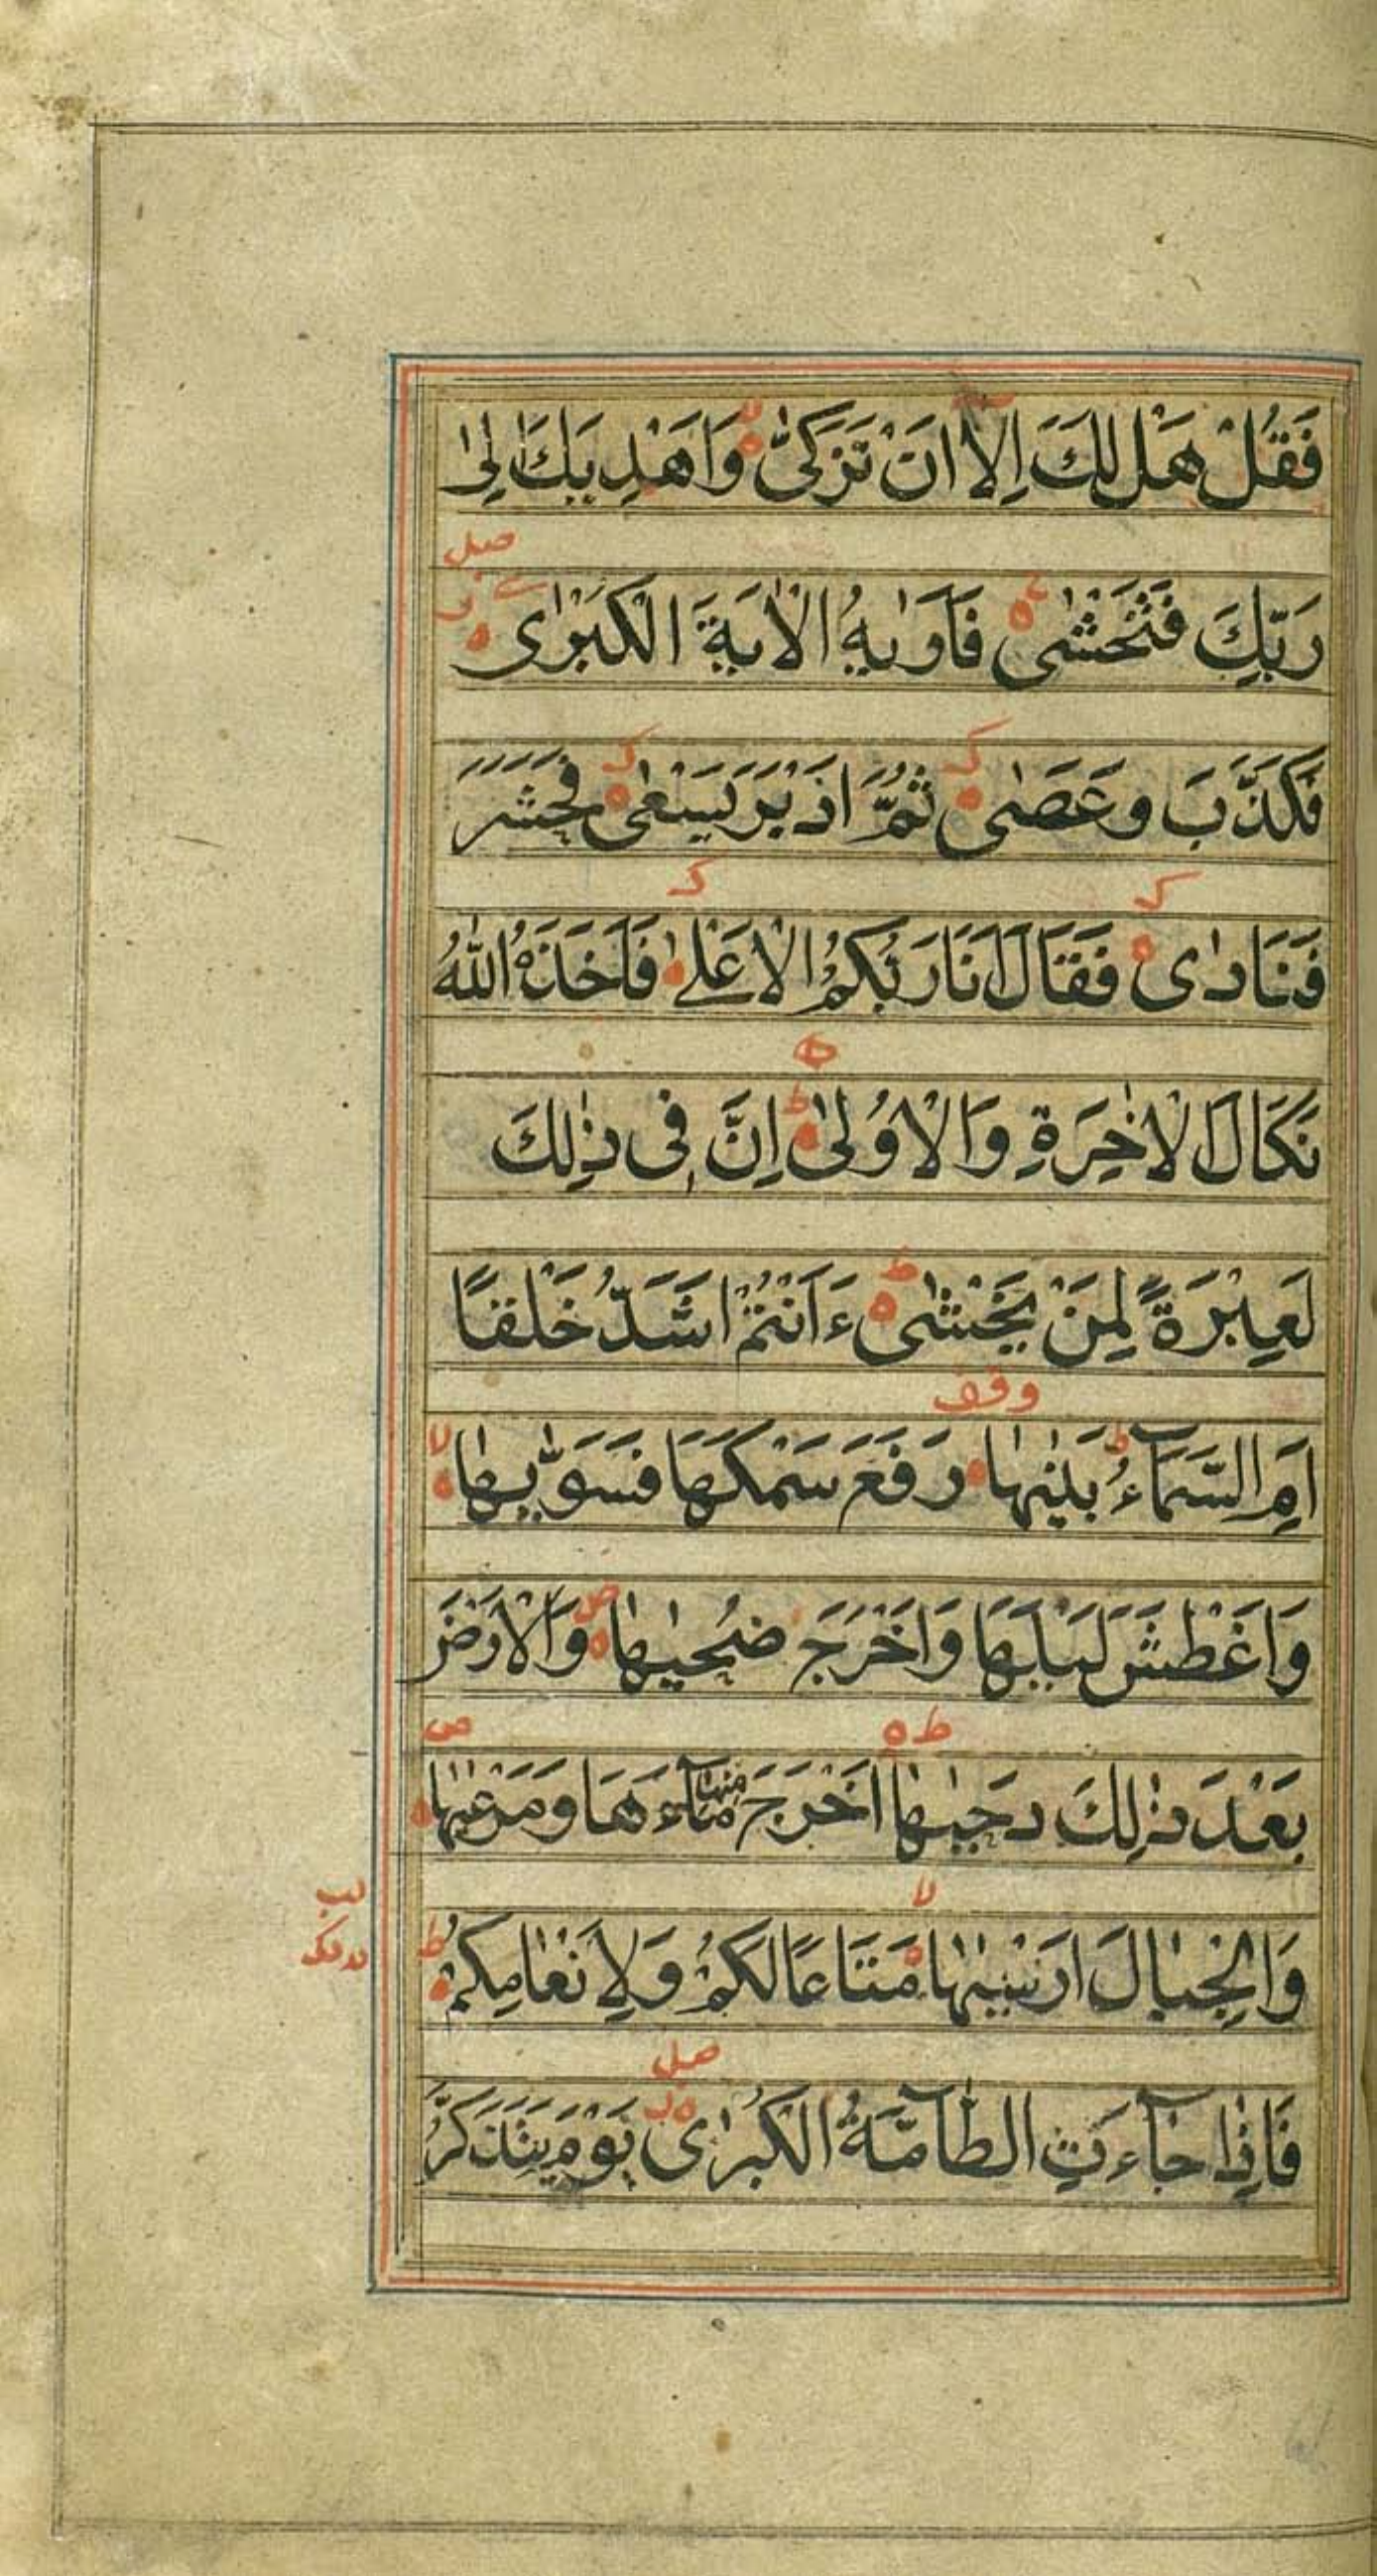 فَقُلْ هَلْ لَكَ اِلٰٓا اَنْ تَزَكّٰى ۙ وَاَهْدِيَكَ اِلٰى
صل
رَبِّكَ فَتَخْشٰى ۚ فَاَرٰىهُ الْاٰيَةَ الْكُبْرٰى
فَكَذَّبَ وَعَصٰى ثُمَّ اَدْبَرَ يَسْعٰى فَحَشَرَ
فَنَادٰى فَقَالَ اَنَا رَبُّكُمُ الْاَعْلٰى فَاَخَذَهُ اللّٰهُ
نَكَالَ الْاٰخِرَةِ وَالْاُوْلٰى ؕ اِنَّ فِى ذٰلِكَ
لَعِبْرَةً لِمَنْ يَخْشٰى ؕ ءَاَنْتُمْ اَشَدُّ خَلْقًا
وقف
اَمِ السَّمَآءُ ؕ بَنٰىهَا رَفَعَ سَمْكَهَا فَسَوّٰىهَا ۙ
وَاَغْطَشَ لَيْلَهَا وَاَخْرَجَ ضُحٰىهَا ص وَالْاَرْضَ
ط ه ص
بَعْدَ ذٰلِكَ دَحٰىهَا اَخْرَجَ مِنْهَا مَآءَهَا وَمَرْعٰىهَا
وَالْجِبَالَ اَرْسٰىهَا ۙ مَتَاعًا لَكُمْ وَلِاَنْعَامِكُمْ ؕ
صل
فَاِذَا جَآءَتِ الطَّآمَّةُ الْكُبْرٰى يَوْمَ يَتَذَكَّرُ